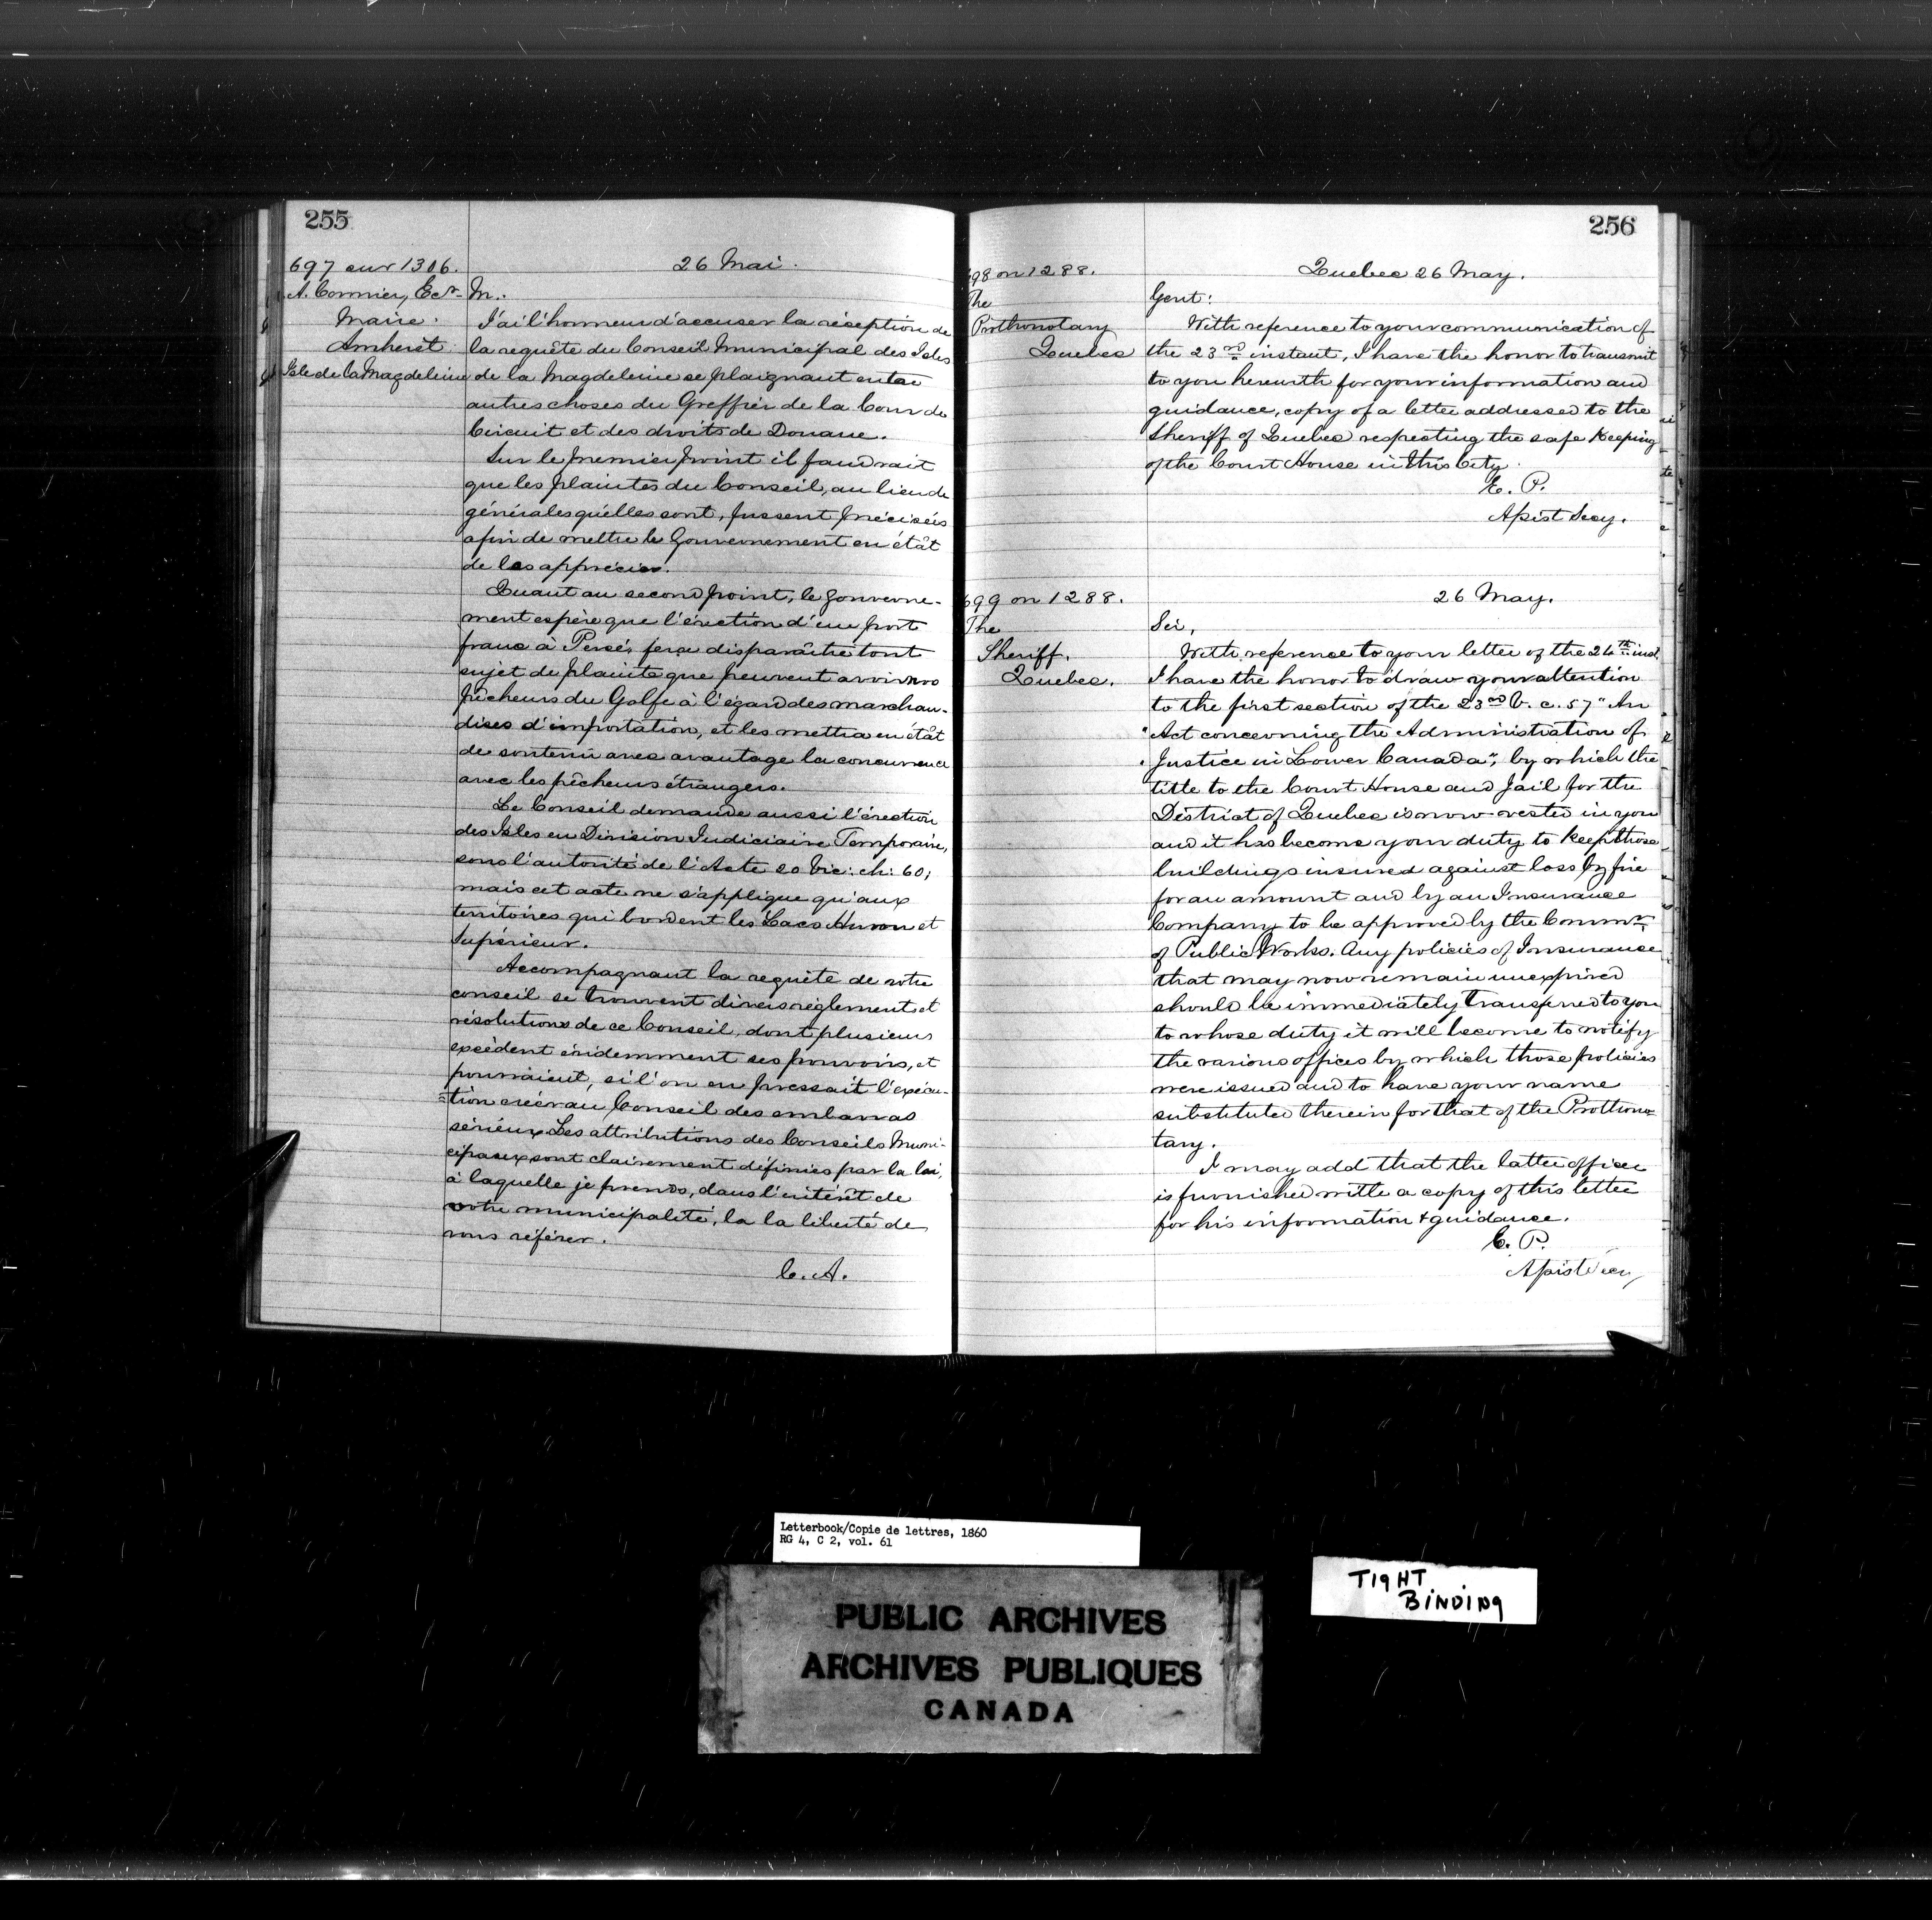 255
697 sur 1306.
A. Cormier, Ecr.
Maire.
Amherst
Isle de la Magdeleine
26 Mai.
M.:
J'ai l'honneur d'accuser la réception de
la requête du Conseil Municipal des Isles
de la Magdeleine se plaignant entre
autres choses du Greffier de la Cour de
Circuit et des droits de Douane.
Sur le premier point il faudrait
que les plaintes du Conseil, au lieu de
générales qu'elles sont, fussent précisées
afin de mettre le Gouvernement en état
de les apprécier.
Quant au second point, le Gouverne-
ment espère que l'érection d'un port
franc à Percé, fera disparaître tout
sujet de plainte que peuvent avoir nos
pêcheurs du Golfe à l'égard des marchan-
dises d'importation, et les mettra en état
de soutenir avec avantage la concurrence
avec les pêcheurs étrangers.
Le Conseil demande aussi l'érection
des Isles en Division Judiciaire Temporaire,
sous l'autorité de l'Acte 20 Vic: ch: 60;
mais cet acte ne s'applique qu'aux
territoires qui bordent les Lacs Huron et
Supérieur.
Accompagnant la requête de votre
conseil se trouvent divers règlements et
résolutions de ce Conseil, dont plusieurs
excèdent évidemment ses pouvoirs, et
pourraient, si l'on en pressait l'exécu-
=tion créer au Conseil des embarras
sérieux. Les attributions des Conseils Muni-
cipaux sont clairement définies par la loi,
à laquelle je prends, dans l'intérêt de
votre municipalité, la la liberté de
vous référer.
C. A.
256
698 on 1288.
The
Prothonotary
Quebec
Quebec 26 May.
Gent:
With reference to your communication of
the 23rd instant, I have the honor to transmit
to you herewith for your information and
guidance, copy of a letter addressed to the
Sheriff of Quebec respecting the safe keeping
of the Court House in this City.
E. P.
Assist Secy.
699 on 1288.
The
Sheriff.
Quebec.
26 May.
Sir,
With reference to your letter of the 24th inst.
I have the honor to draw your attention
to the first section of the 23rd V. c. 57 "An
"Act concerning the Administration of
"Justice in Lower Canada", by which the
title to the Court House and Jail for the
District of Quebec is now vested in you
and it has become your duty to keep those
buildings insured against loss by fire
for an amount and by an Insurance
Company to be approved by the Commrs.
of Public Works. Any policies of Insurance
that may now remain unexpired
should be immediately transferred to you
to whose duty it will become to notify
the various offices by which those policies
were issued and to have your name
substituted therein for that of the Prothono-
tary.
I may add that the latter officer
is furnished with a copy of this letter
for his information & guidance.
E. P.
Assist Secy
Letterbook/Copie de lettres, 1860
RG 4, C 2, vol. 61
PUBLIC ARCHIVES
ARCHIVES PUBLIQUES
CANADA
TIGHT
BINDING